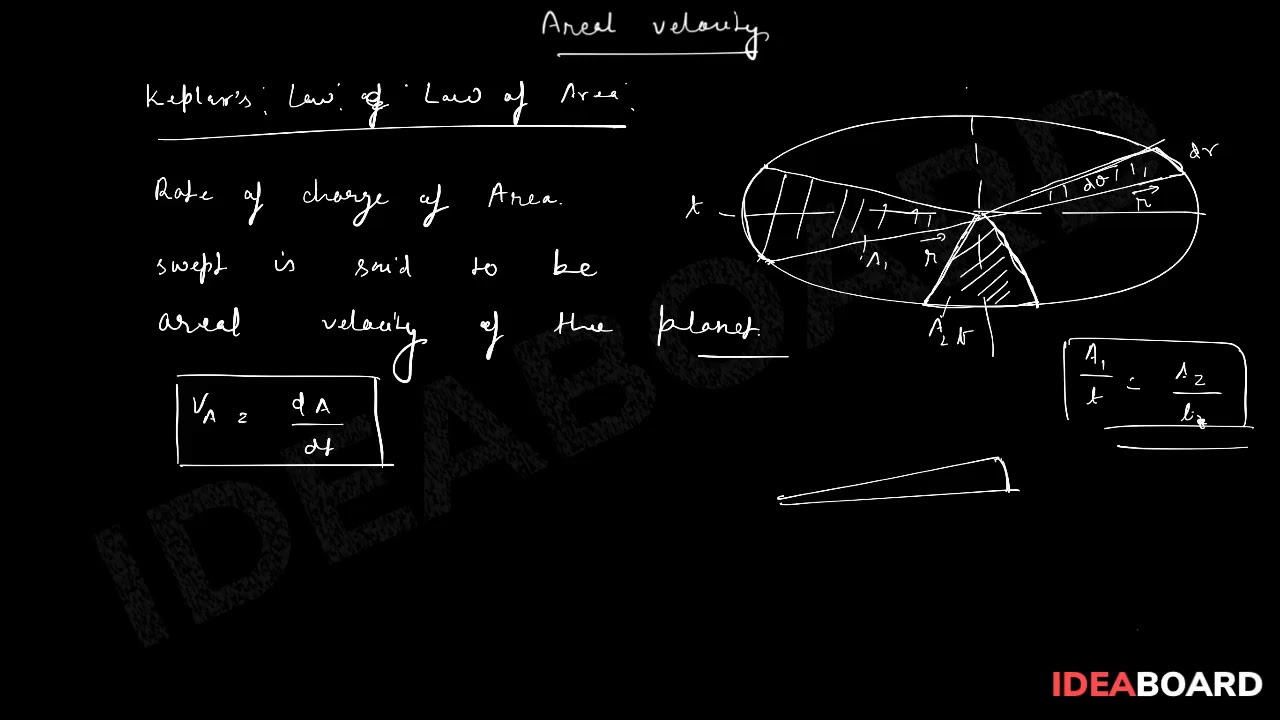 Areal velocity
Keplar's Law of Law of Area.
Rate of change of Area.
swept is said to be
areal velocity of the planet.
V_A = dA/dt
dr
dθ
r
t
A1
r
A2 t
A1/t = A2/t
IDEABOARD
IDEABOARD